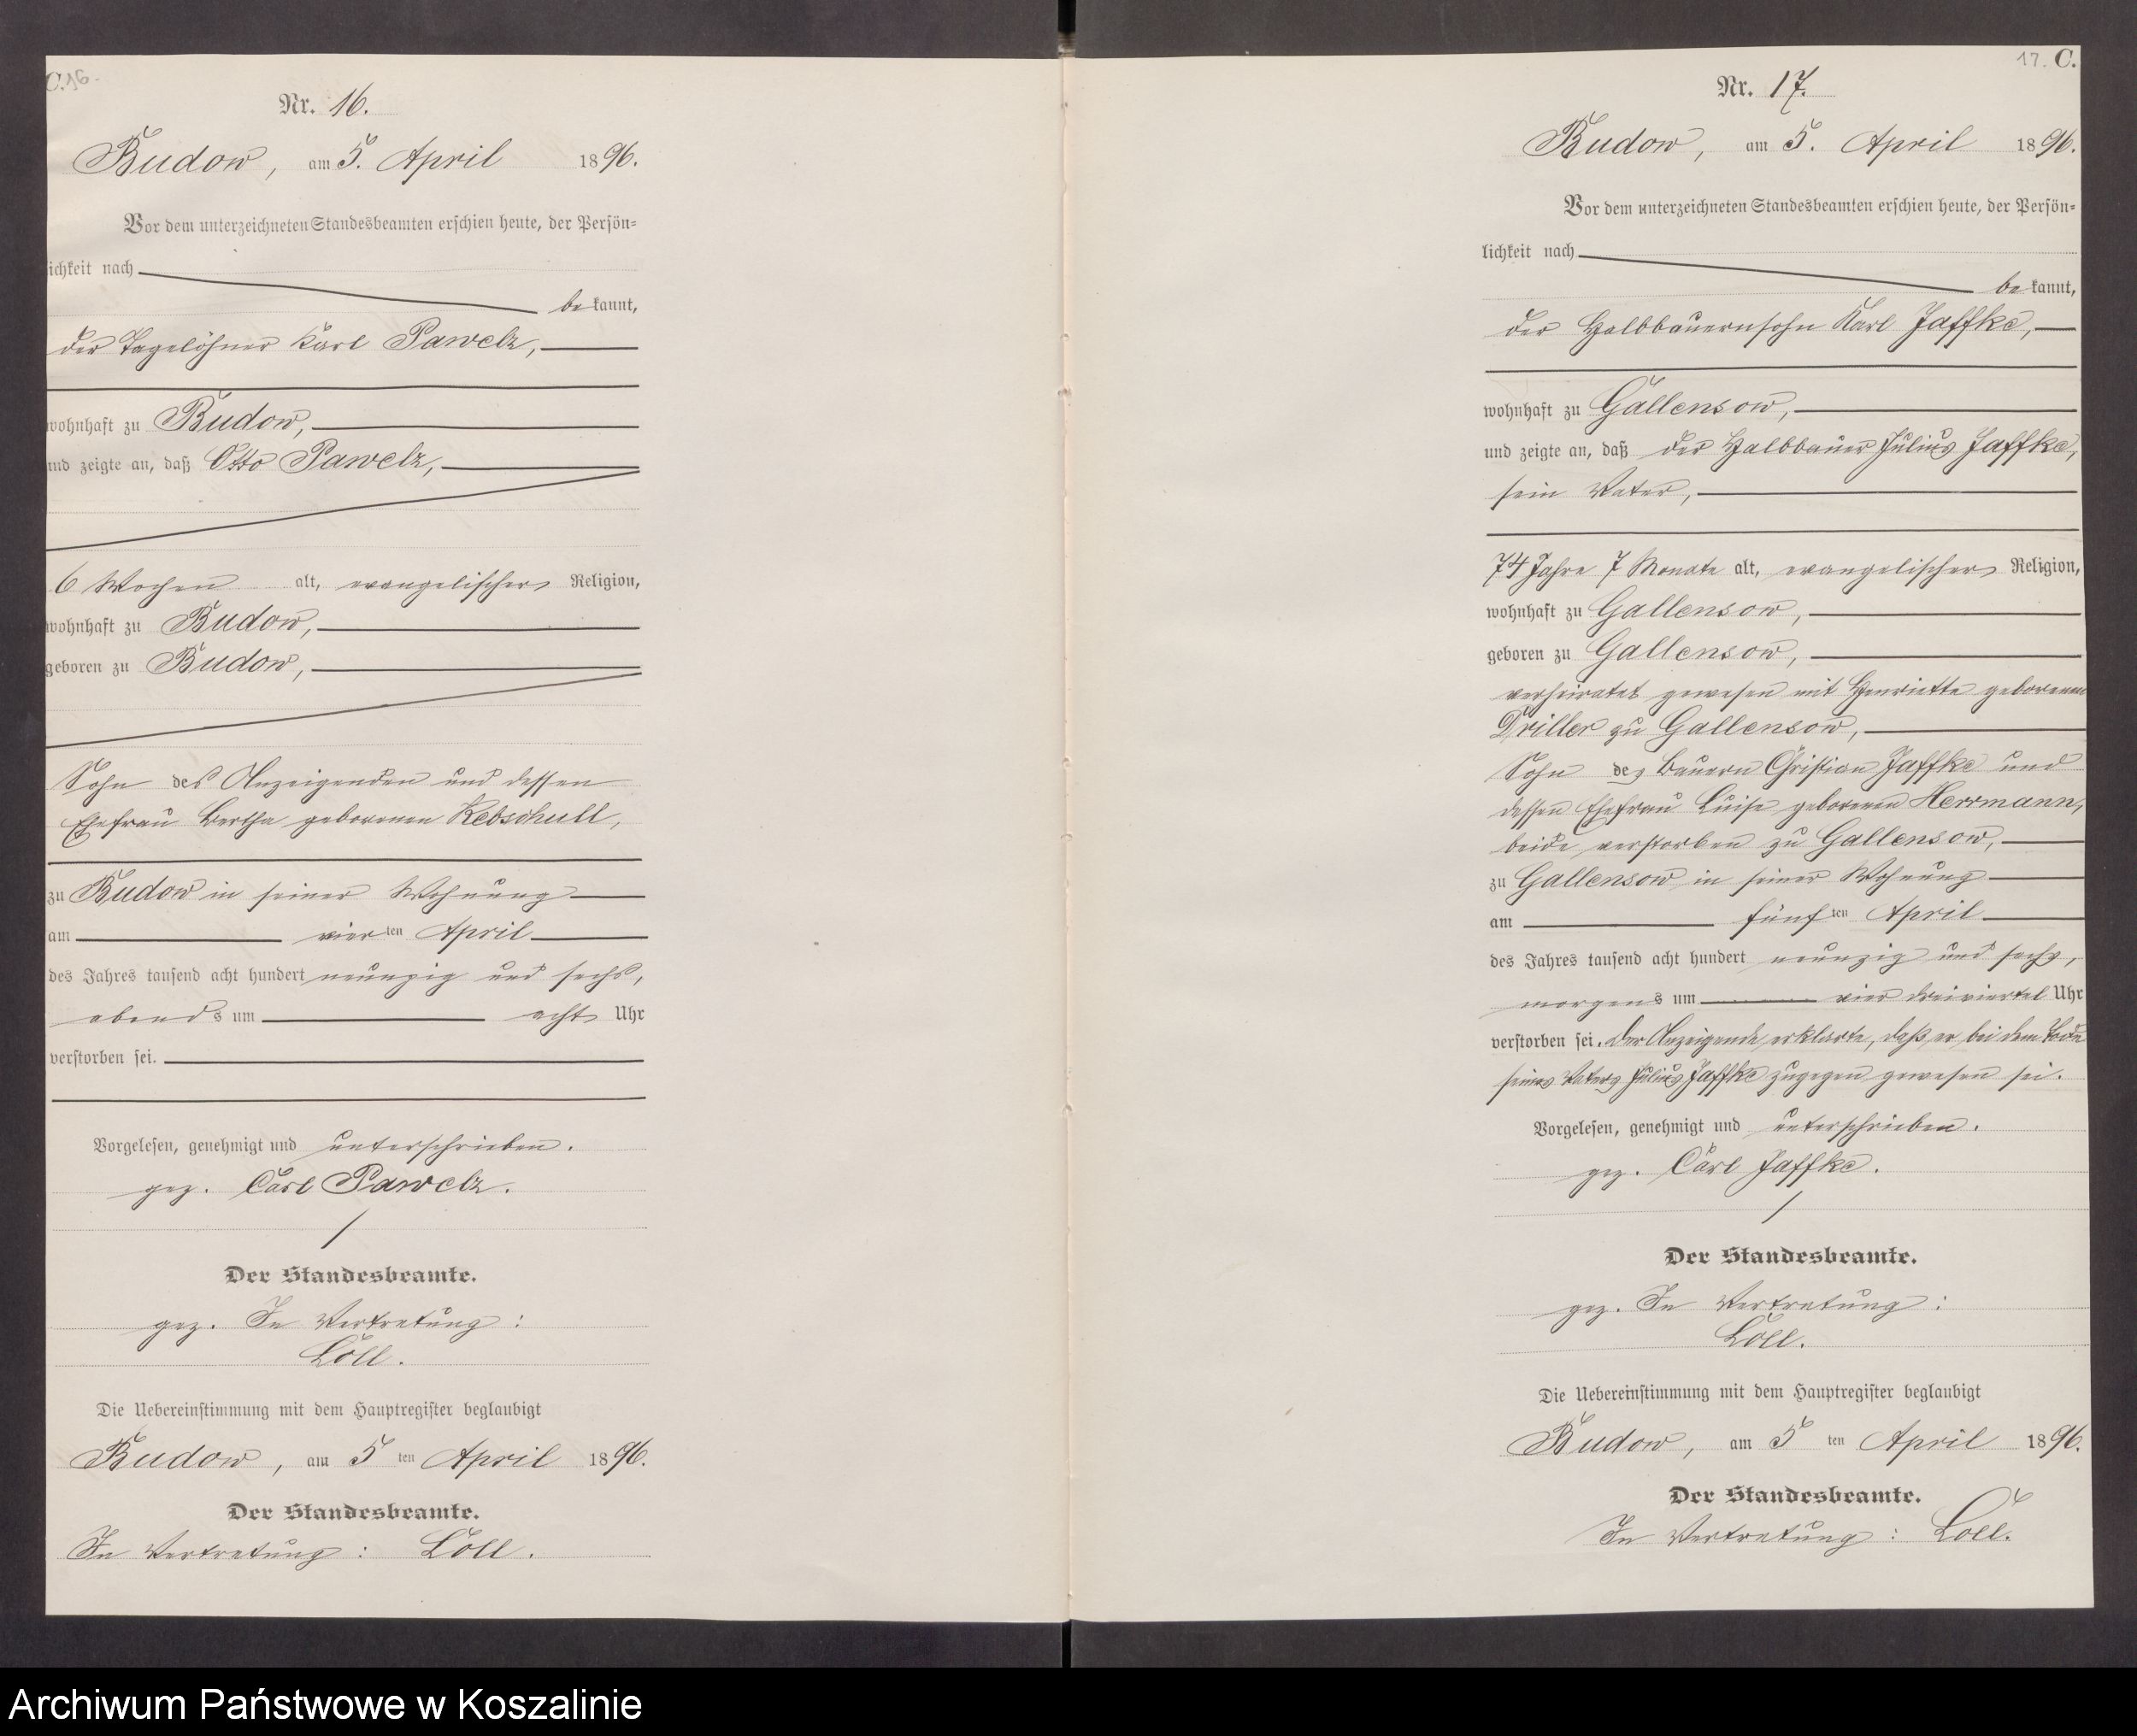 C. 16.
Nr. 16.
Budow, am 5. April 1896.
Vor dem unterzeichneten Standesbeamten erschien heute, der Persön-
lichkeit nach
be kannt,
der Tagelöhner Karl Pawelz,
wohnhaft zu Budow,
und zeigte an, daß Otto Pawelz,
6 Wochen alt, evangelischer Religion,
wohnhaft zu Budow,
geboren zu Budow,
Sohn des Anzeigenden und dessen
Ehefrau Bertha geborenen Rebschull,
zu Budow in seiner Wohnung
am vier ten April
des Jahres tausend acht hundert neunzig und sechs,
abends um acht Uhr
verstorben sei.
Vorgelesen, genehmigt und unterschrieben.
gez. Carl Pawelz.
Der Standesbeamte.
gez. In Vertretung:
Löll.
Die Uebereinstimmung mit dem Hauptregister beglaubigt
Budow, am 5 ten April 1896.
Der Standesbeamte.
In Vertretung: Löll.
17. C.
Nr. 17.
Budow, am 5. April 1896.
Vor dem unterzeichneten Standesbeamten erschien heute, der Persön-
lichkeit nach
be kannt,
der Halbbauernsohn Karl Jaffke,
wohnhaft zu Gallensow,
und zeigte an, daß der Halbbauer Julius Jaffke,
sein Vater,
74 Jahre 7 Monate alt, evangelischer Religion,
wohnhaft zu Gallensow,
geboren zu Gallensow,
verheiratet gewesen mit Henriette geborenen
Driller zu Gallensow,
Sohn des Bauern Christian Jaffke und
dessen Ehefrau Luise geborenen Herrmann,
beide verstorben zu Gallensow,
zu Gallensow in seiner Wohnung
am fünf ten April
des Jahres tausend acht hundert neunzig und sechs,
morgens um vier dreiviertel Uhr
verstorben sei. Der Anzeigende erklärte, daß er bei dem Tode
seines Vaters Julius Jaffke zugegen gewesen sei.
Vorgelesen, genehmigt und unterschrieben.
gez. Carl Jaffke.
Der Standesbeamte.
gez. In Vertretung:
Löll.
Die Uebereinstimmung mit dem Hauptregister beglaubigt
Budow, am 5 ten April 1896.
Der Standesbeamte.
In Vertretung: Löll.
Archiwum Państwowe w Koszalinie